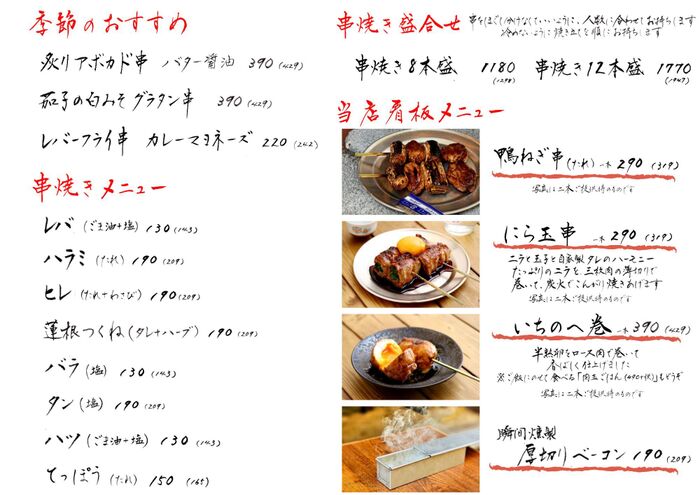 季節のおすすめ
炙りアボカド串 バター醤油 390 (429)
茄子の白みそグラタン串 390 (429)
レバーフライ串 カレーマヨネーズ 220 (242)
串焼きメニュー
レバ (ごま油+塩) 130 (143)
ハラミ (たれ) 190 (209)
ヒレ (たれ+わさび) 190 (209)
蓮根つくね (タレ+ハーブ) 190 (209)
バラ (塩) 130 (143)
タン (塩) 190 (209)
ハツ (ごま油+塩) 130 (143)
てっぽう (たれ) 150 (165)
串焼き盛合せ
冷めないように焼き立てを順にお持ちします
串焼き8本盛 1180 (1298) 串焼き12本盛 1770 (1947)
当店看板メニュー
鴨ねぎ串 (たれ) 一本 290 (319)
写真は二本ご提供時のものです
にら玉串 一本 290 (319)
ニラと玉子と自家製タレのハーモニー
たっぷりのニラを、三枚肉の薄切りで
巻いて、炭火でこんがり焼きあげます
写真は二本ご提供時のものです
いちのへ巻 一本 390 (429)
半熟卵をロース肉で巻いて
香ばしく仕上げました
※ご飯にのせて食べる「肉玉ごはん
写真は二本ご提供時のものです
瞬間燻製
厚切りベーコン 190 (209)